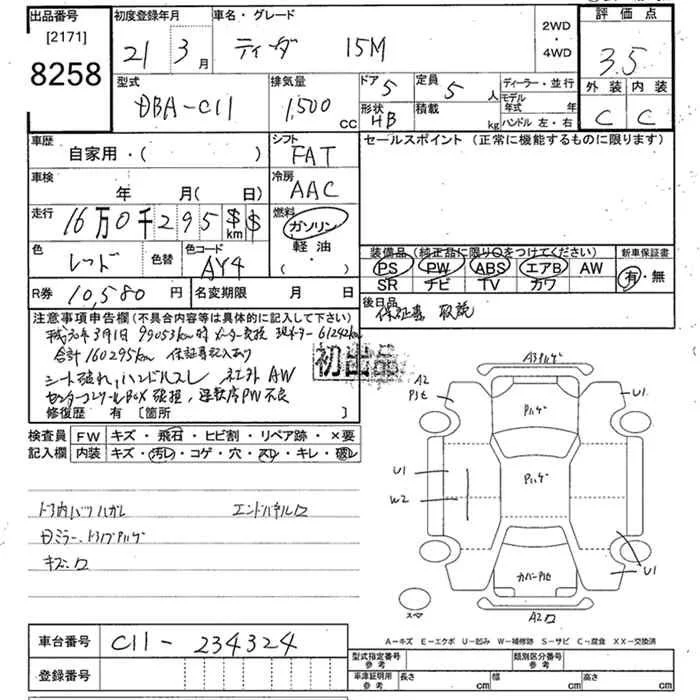 出品番号 初度登録年月 車名・グレード 2WD・4WD 評価点
[2171] 8258 21 3月 ティーダ 15M 3.5
型式 排気量 ドア 5 定員 5人 ディーラー・並行 外装 内装
DBA-C11 1,500 CC 形状 HB 積載 kg モデル年式 年 C C
ハンドル 左・右
車歴 自家用・( ) シフト FAT セールスポイント (正常に機能するものに限ります)
車検 年 月( 日) 冷房 AAC
走行 16万0千295 km 燃料 ガソリン
軽油・( ・ )
色 レッド 色替 色コード AY4 装備品 (純正品に限り○をつけてください) 新車保証書
PS PW ABS エアB AW 有・無
SR ナビ TV カワ
R券 10,580円 名変期限 月 日 後日品 保証書 取説
注意事項申告欄(不具合内容等は具体的に記入して下さい)
99053km時 メーター交換 現メーター 61242km
合計 160295km 保証書記入あり
初出品
シート破れ、ハンドルスレ 社外 AW
運転席PW不良
修復歴 有 〔箇所 〕
検査員 FW キズ・飛石・ヒビ割・リペア跡・×要
記入欄 内装 キズ・汚レ・コゲ・穴・スレ・キレ・破レ
A3 ハゲ
A2
U1
ハゲ
ハゲ
U1
W2
U1
スマ
A2
A-キズ E-エクボ U-凹み W-補修跡 S-サビ C-腐食 XX-交換済
車台番号 C11-234324
登録番号
型式指定番号 参考 類別区分番号 参考
車庫証明用 参考 長さ cm 幅 cm 高さ cm